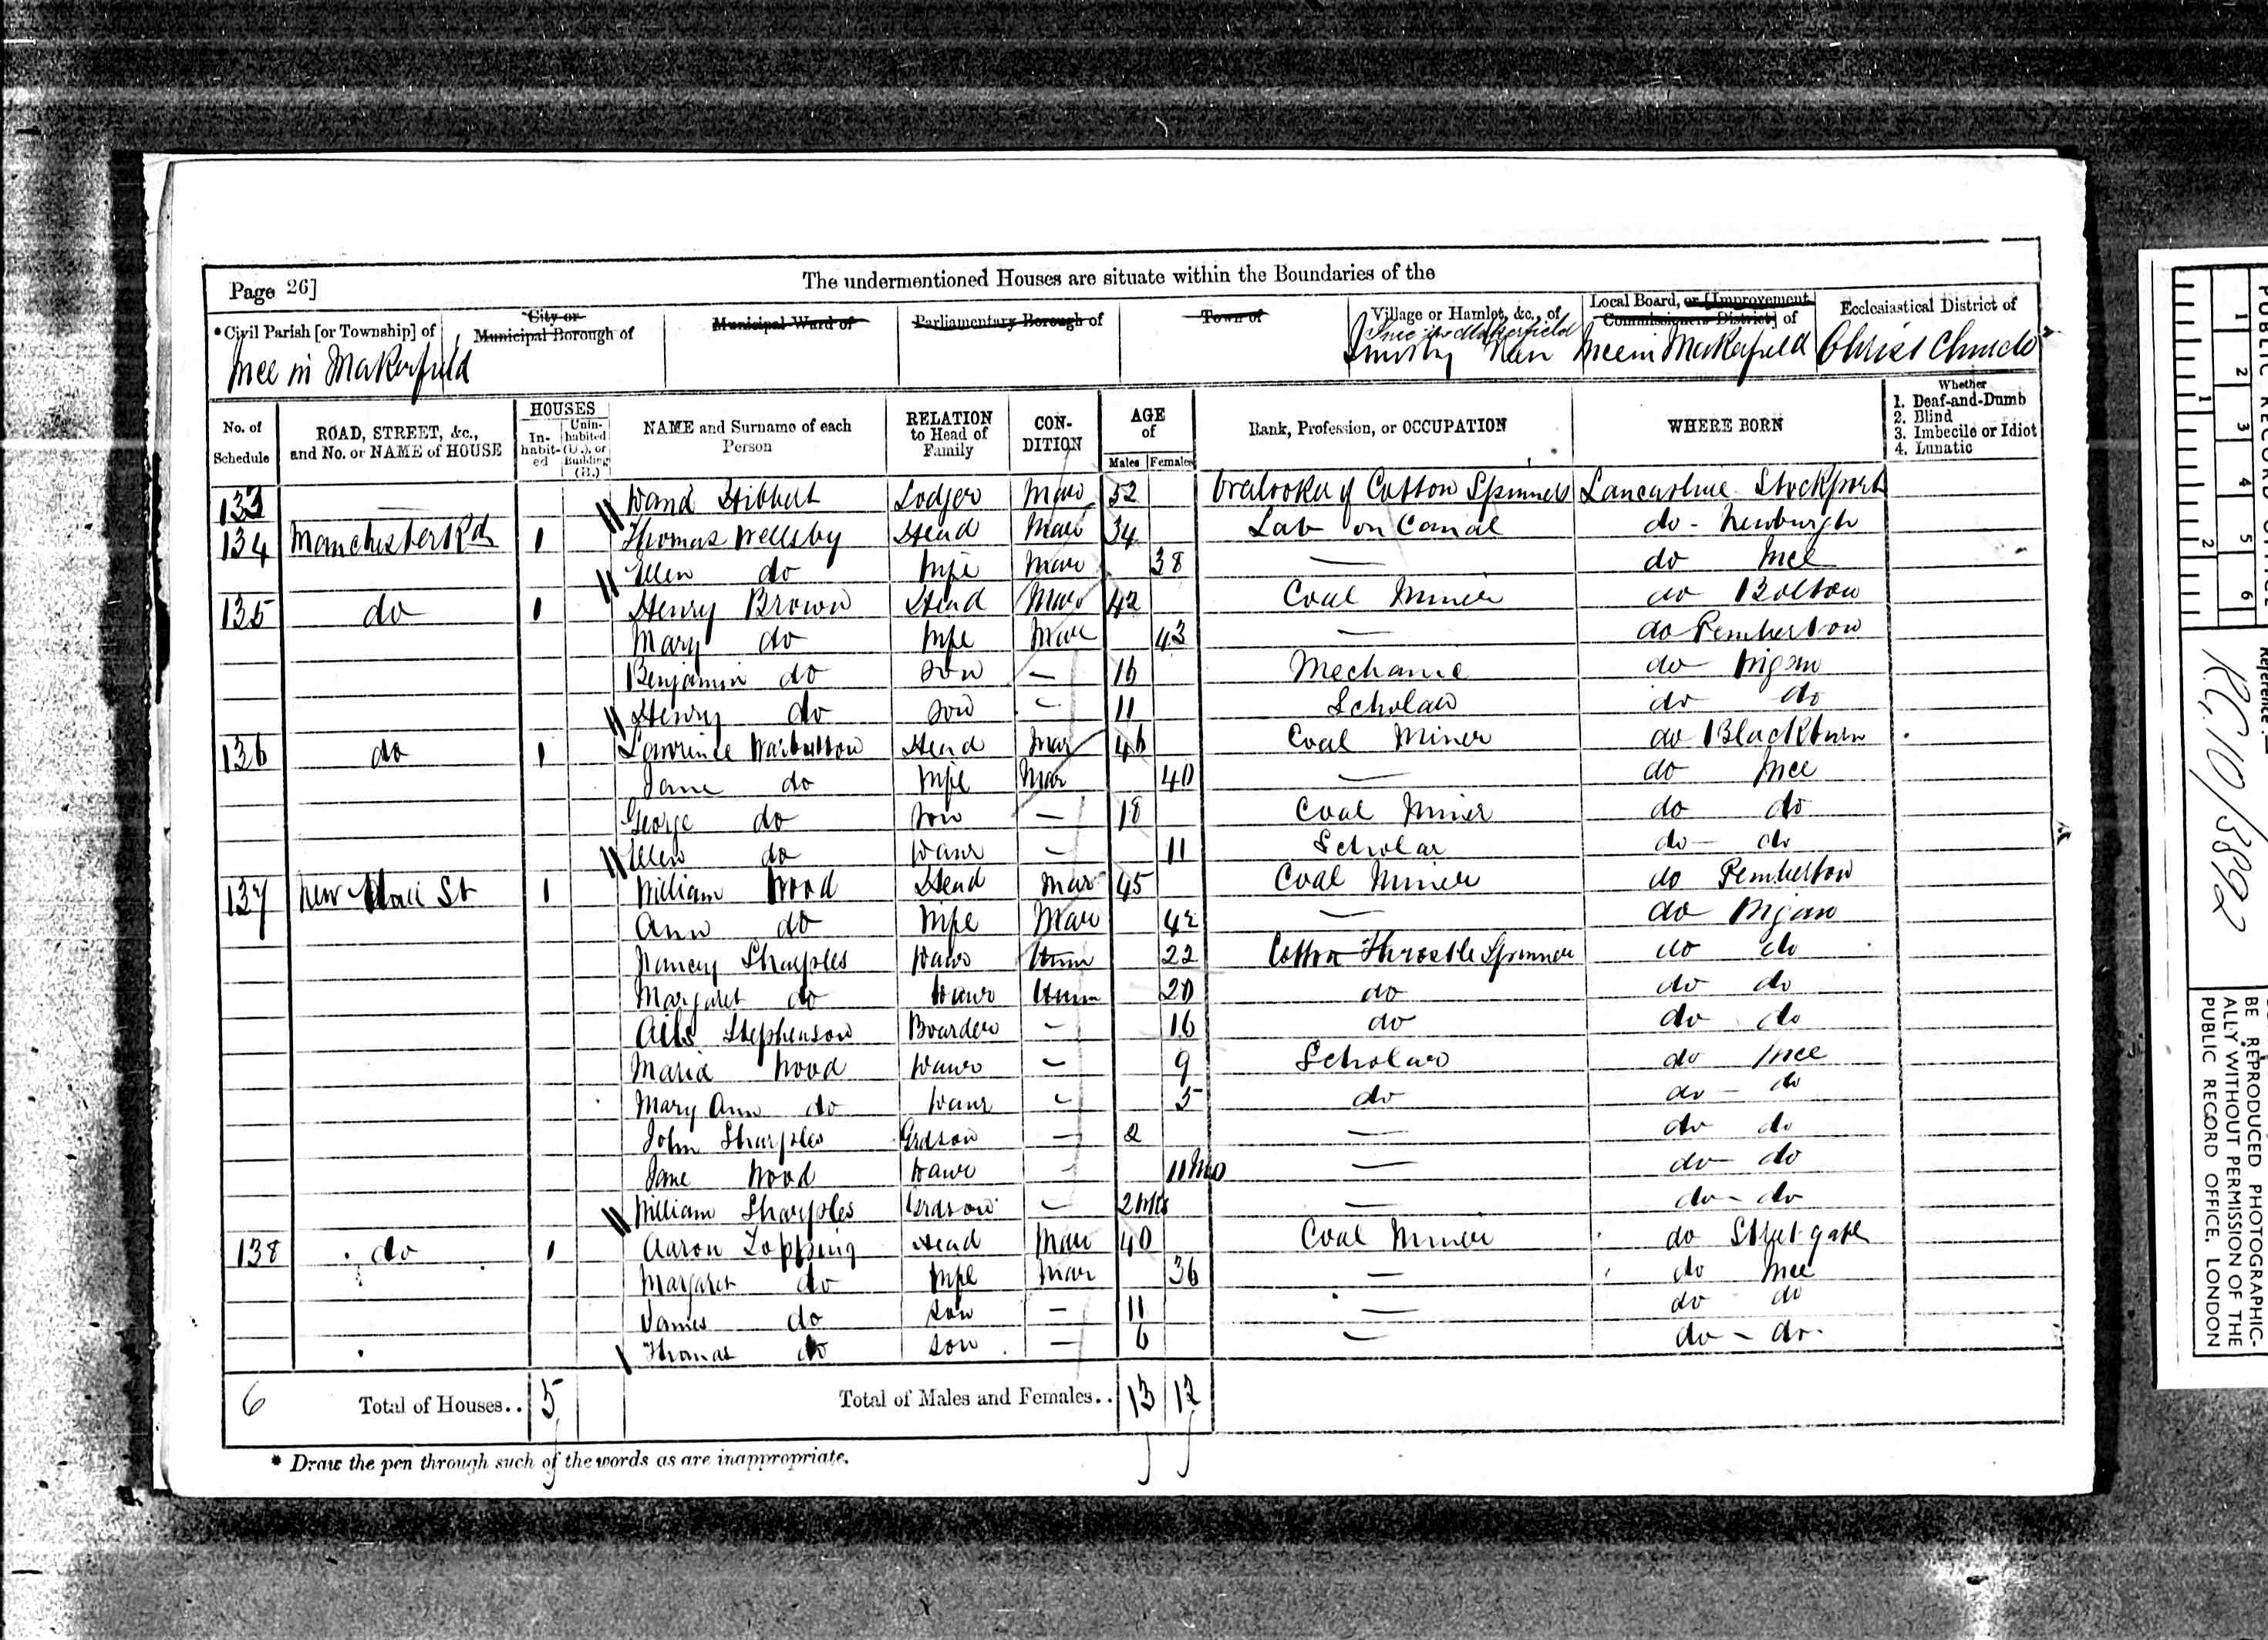 Page 26]
The undermentioned Houses are situate within the Boundaries of the
*Civil Parish [or Township] of
City or Municipal Borough of
Municipal Ward of
Parliamentary Borough of
Town of
Village or Hamlet, &c., of
Local Board, or [Improvement Commissioners District] of
Ecclesiastical District of
Ince in Makerfield
Ince in Makerfield
Ince in Makerfield
Christ Church
No. of Schedule
ROAD, STREET, &c., and No. or NAME of HOUSE
HOUSES
In-habit-ed
Unin-habited (U.), or Building (B.)
NAME and Surname of each Person
RELATION to Head of Family
CON-DITION
AGE of
Males
Females
Rank, Profession, or OCCUPATION
WHERE BORN
Whether
1. Deaf-and-Dumb
2. Blind
3. Imbecile or Idiot
4. Lunatic
133 — David Hibbert Lodger Mar 52 Overlooker of Cotton Spinners Lancashire Stockport
134 Manchester Rd 1 Thomas Wellsby Head Mar 34 Lab on Canal do - Newburgh
Ellen do Wife Mar 38 — do Ince
135 do 1 Henry Brown Head Mar 42 Coal Miner do Bolton
Mary do Wife Mar 43 — do Pemberton
Benjamin do Son — 16 Mechanic do Wigan
Henry do Son - 11 Scholar do do
136 do 1 Lawrence Warbutton Head Mar 46 Coal Miner do Blackburn
Jane do Wife Mar 40 — do Ince
George do Son — 18 Coal Miner do do
Ellen do Daur - 11 Scholar do - do
137 New St 1 William Wood Head Mar 45 Coal Miner do Pemberton
Ann do Wife Mar 42 — do Wigan
Nancy Sharples Daur Unm 22 Cotton Throstle Spinner do do
Margaret do Daur Unm 20 do do do
Stephenson Boarder - 16 do do do
Maria Wood Daur - 9 Scholar do Ince
Mary Ann do Daur - 5 do do - do
John Sharples Grdson — 2 — do do
Jane Wood Daur - 11 Mo — do - do
William Sharples Grdson - 2 Mts — do - do
138 do 1 Aaron Topping Head Mar 40 Coal Miner do
Margaret do Wife Mar 36 — do Ince
James do Son — 11 — do do
Thomas do Son — 6 — do - do
6 Total of Houses.. 5 Total of Males and Females.. 13 12
* Draw the pen through such of the words as are inappropriate.
R.G. 10/3892
BE REPRODUCED PHOTOGRAPHIC-
ALLY WITHOUT PERMISSION OF THE
PUBLIC RECORD OFFICE, LONDON
1 2 3 4 5 6
1 2